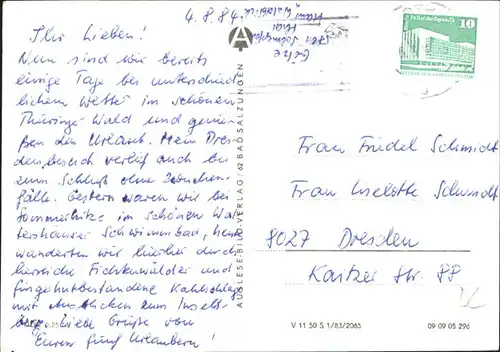 4. 8. 84.
Ihr Lieben!
Nun sind wir bereits
einige Tage bei unterschied-
lichem Wetter im schönen
Thüringer Wald und genie-
ßen den Urlaub. Mein Dres-
denbesuch verlief auch bis
zum Schluß ohne Zwischen-
fälle. Gestern waren wir bei
Sommerhitze im schönen Wal-
tershäuser Schwimmbad, heute
wanderten wir hierher durch
herrliche Fichtenwälder und
fingerhutbestandene Kahlschläge
mit Ausblicken zum Insels-
berg. Liebe Grüße von
Euren fünf Urlaubern!
AUSLESE-BILD-VERLAG, 62 BAD SALZUNGEN
10
Frau Friedel Schmidt
Frau Liselotte Schmidt
8027 Dresden
Kaitzer Str. 88
V 11 50 S 1/83/2065
09 09 05 296